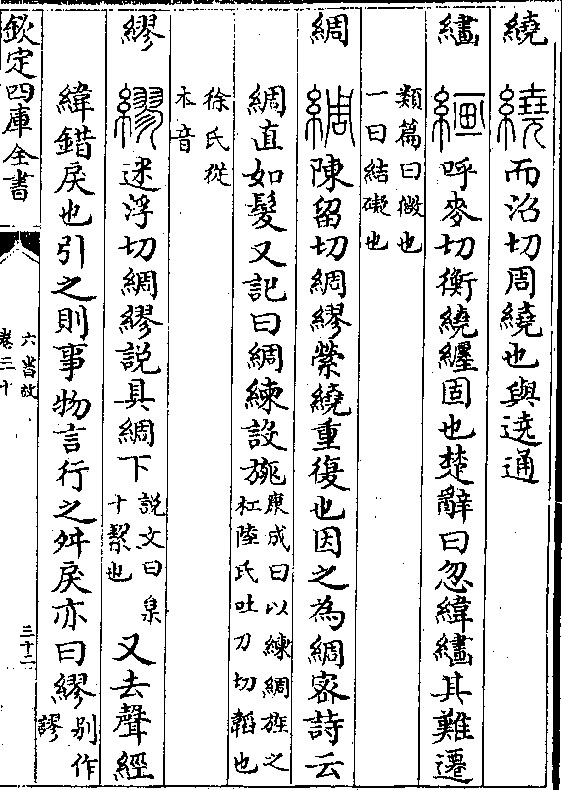 繞 繞 而沼切周繞也與遶通
繣 繣 呼麥切衡繞纒固也楚辭曰忽緯繣其難遷
類篇曰徽也一曰結礙也
綢 綢 陳留切綢繆縈繞重復也因之為綢宻詩云
綢直如髮又記曰綢練設旐康成曰以練綢旌之杠陸氏吐刀切韜也
徐氏從本音
繆 繆 迷浮切綢繆説具綢下説文曰枲十絜也又去聲經
緯錯戾也引之則事物言行之舛戾亦曰繆别作謬
欽定四庫全書
六書故
卷三十
三十二